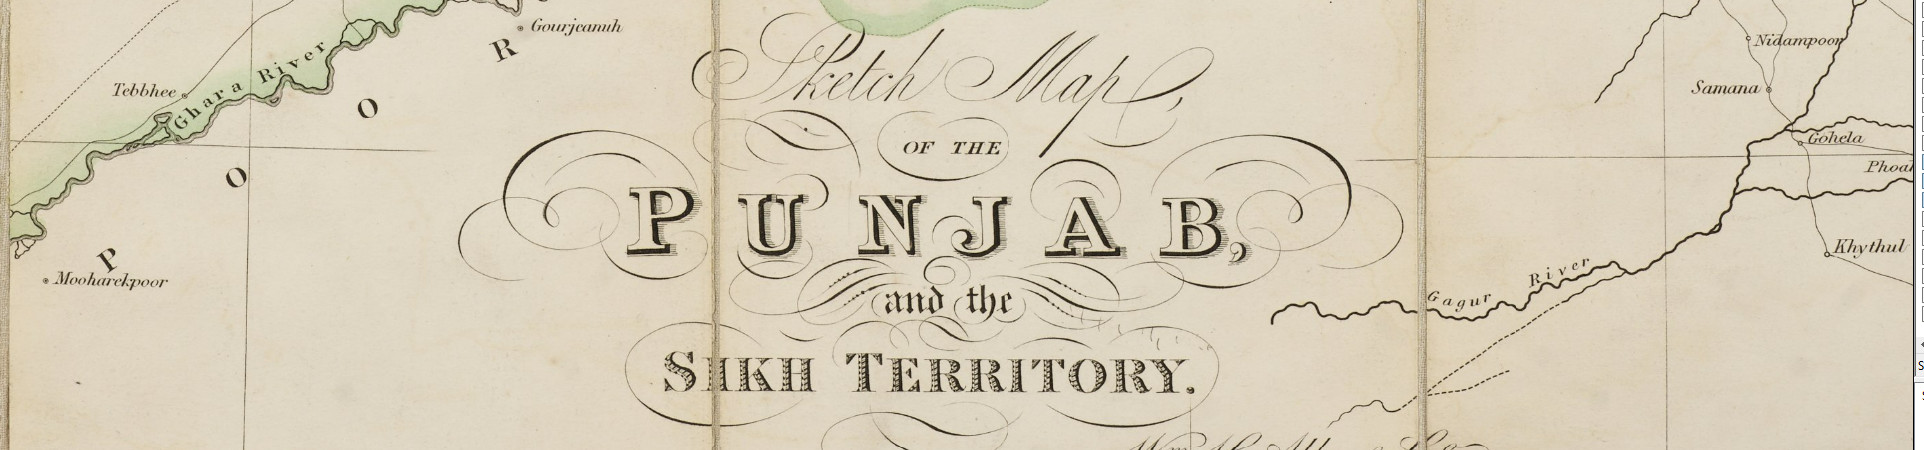 Gourjeanuh
R
Nidampoor
Sketch Map,
Tebbhee
Ghara River
Samana
O
OF THE
Gohela
Phoal
O
PUNJAB,
Khythul
P
Mooharekpoor
Gagur River
and the
SIKH TERRITORY.